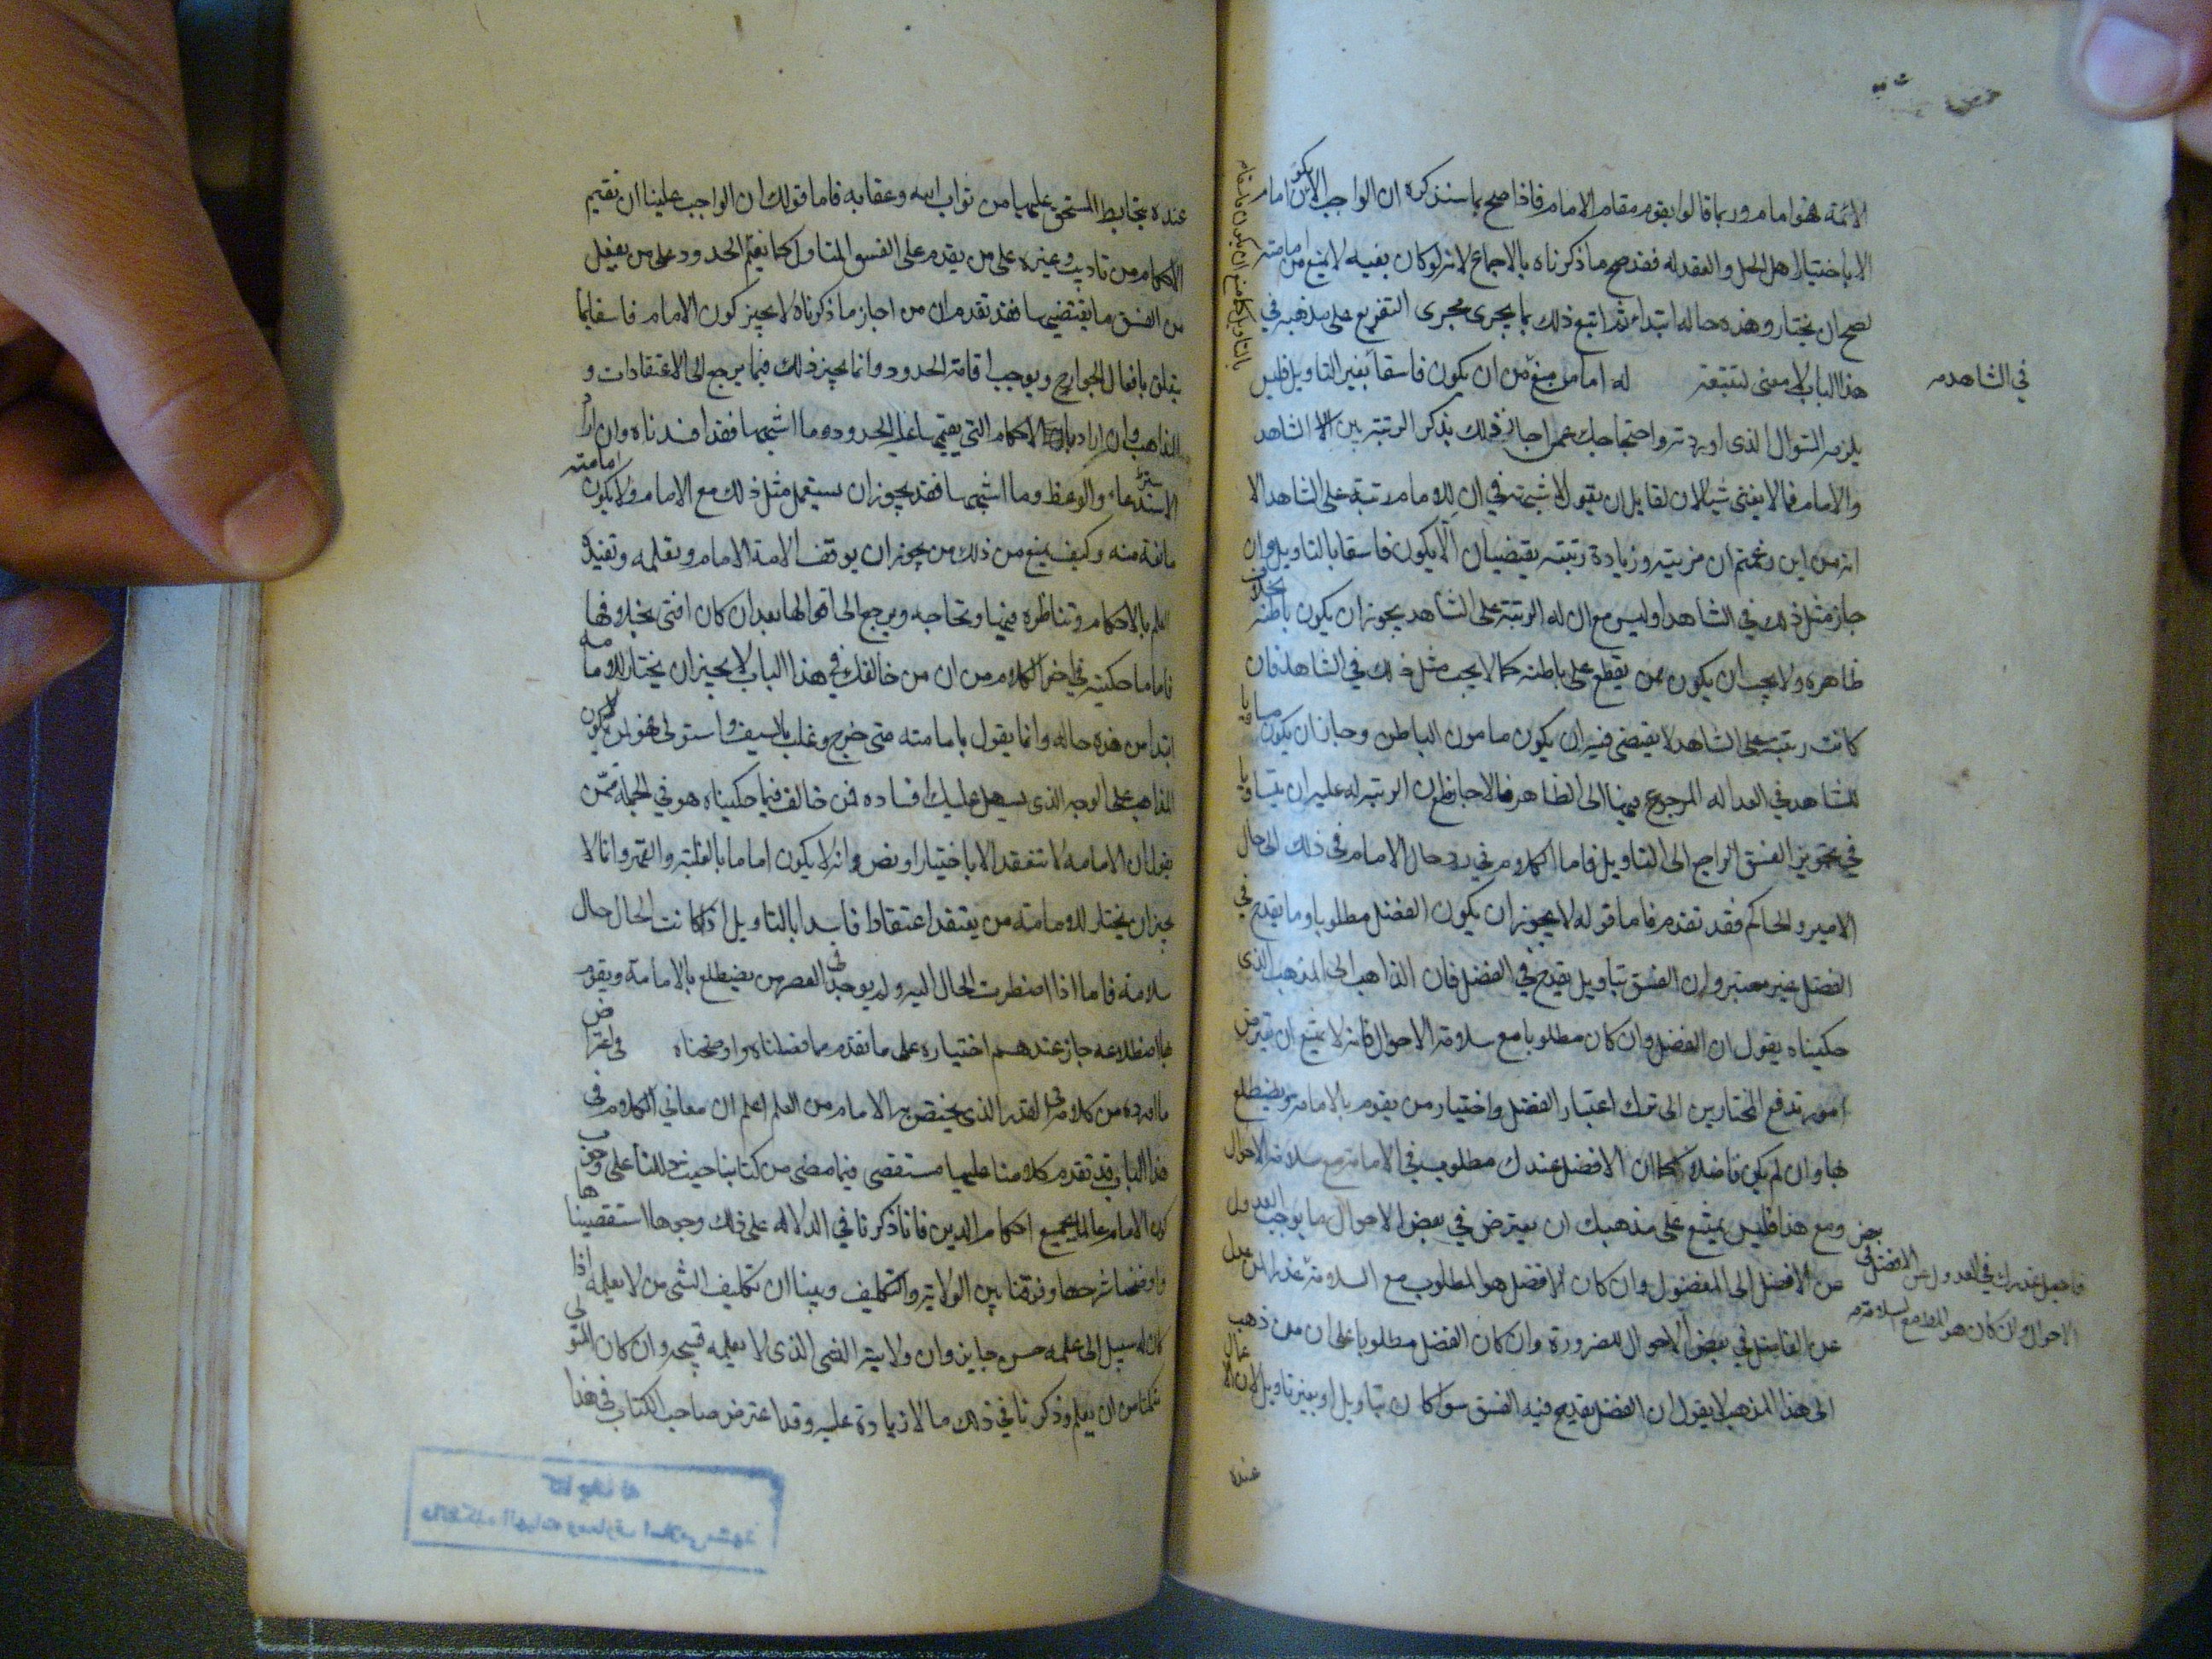 الائمة هو امام وربما قالوا يقوم مقام الامام فاذا صح بما سنذكره ان الواجب الا يكون امام
الا باختيار اهل الحل والعقد له فقد صح ما ذكرناه بالاجماع لانه لو كان بغيه لا يمنع من امامته
لصح ان يختار وهذه حاله ابتداء ثم اتبع ذلك بما يجرى مجرى التفريع على مذهبه في
هذا الباب لا معنى لتتبعه له اما من منع من ان يكون فاسقا بغير التاويل فليس
يلزمه السؤال الذى اوردته واحتجاجك عمن اجاز ذلك بذكر الرتبة بين الشاهد
في الشاهد
والامام فما لا يغنى شيئا لان لقايل ان يقول لا شبهة في ان للامام رتبة على الشاهد الا
انه من اين زعمتم ان مزيته وزيادة رتبته يقتضيان الا يكون فاسقا بالتاويل وان
جاز مثل ذلك في الشاهد او ليس مع ان له الرتبة على الشاهد يجوز ان يكون باطنه بخلاف
ظاهره ولا يجب ان يكون ممن يقطع على باطنه كما لا يجب مثل ذلك في الشاهد فان
كانت رتبته على الشاهد لا يقتضى فيه ان يكون مامون الباطن وجاز ان يكون مساويا
للشاهد في العداله المرجوع فيها الى الظاهر فالا جاز مع ان الرتبة له عليه ان يتساويا
في تجويز الفسق الراجع الى التاويل فاما الكلام في رد حال الامام في ذلك الى حال
الامير والحاكم فقد تقدم فاما قوله لا يجوز ان يكون الفضل مطلوبا وما يقدح في
الفضل غير معتبر وان الفسق بتاويل يقدح في الفضل فان الذاهب الى المذهب الذى
حكيناه يقول ان الفضل وان كان مطلوبا مع سلامة الاحوال فانه لا يمتنع ان يعترض
امور تدفع المختارين الى ترك اعتبار الفضل واختيار من يقوم بالامامة ويضطلع
بها وان لم يكن فاضلا كما ان الافضل عندك مطلوب في الامامة مع سلامة الاحوال
ومع هذا فليس يمتنع على مذهبك ان يعترض في بعض الاحوال ما يوجب العدول
عن الافضل الى المفضول وان كان الافضل هو المطلوب مع السلامة عذرا لمن عدل
فاجعل عذرك في العدول عن الافضل في بعض
الاحوال وان كان هو المطلوب مع السلامة
عن الفاضل في بعض الاحوال للضرورة وان كان الفضل مطلوبا على ان من ذهب
الى هذا المذهب لا يقول ان الفضل يقدح فيه الفسق سوا كان بتاويل او بغير تاويل لان
عنده
عنده يحابط المستحق عليها من ثواب الله وعقابه فاما قولك ان الواجب علينا ان نقيم
الاحكام من تاديب وغيره على من يقدم على الفسق المتاول كما نقيم الحدود على من يفعل
من الفسق ما يقتضيها فقد تقدم ان من اجاز ما ذكرناه لا يجيز كون الامام فاسقا بما
يتعلق بافعال الجوارح ويوجب اقامة الحدود وانما يجيز ذلك فيما يرجع الى الاعتقادات و
المذاهب وان اراد بالاحكام التي يقيمها عليه الحدود وما اشبهها فقد افسدناه وان اراد
الاستدعاء والوعظ وما اشبهها فقد يجوز ان يستعمل مثل ذلك مع الامام ولا يكون امامته
مانعة منه وكيف يمنع من ذلك من يجوز ان يوقف الامة الامام وتعلمه وتفيده
العلم بالاحكام وتناظره فيها وتحاجه ويرجع الى اقوالها بعد ان كان افتى بخلافها
فاما ما حكيته في اخر الكلام من ان من خالفك في هذا الباب لا يجيز ان يختار للامامة
ابتدا من هذه حاله وانما يقول بامامته متى خرج وغلب بالسيف واستولى فهو
الذاهب على الوجه الذى يسهل عليك افساده فمن خالف فيما حكيناه هو في الجملة ممن
يقول ان الامامة لا تنعقد الا باختيار او نص وانه لا يكون اماما بالغلبة والقهر وانا لا
نجيز ان يختار للامامة من يعتقد اعتقادا فاسدا بالتاويل اذا كانت الحال حال
سلامة فاما اذا اضطرت الحال اليه ولم يوجد في العصر من يضطلع بالامامة ويقوم
بها اضطلاعه جاز عندهم اختياره على ما تقدم مما فصلناه واوضحناه في اعتراض
ما اورده من كلام في القدر الذى يختص به الامام من العلم اعلم ان معاني الكلام في
هذا الباب قد تقدم كلامنا عليها مستقصى فيما مضى من كتابنا حيث دللنا على وجوب
كون الامام عالما بجميع احكام الدين فانا ذكرنا في الدلالة على ذلك وجوها استقصيناها
واوضحنا شرحها وفرقنا بين الولاية والتكليف وبينا ان تكليف الشى من لا يعلمه اذا
كان له سبيل الى علمه حسن جايز وان ولاية الشى الذى لا يعلمه قبيحه وان كان المتولى
متمكنا من ان يعلم وذكرنا في ذلك ما لا زيادة عليه وقد اعترض صاحب الكتاب في هذا